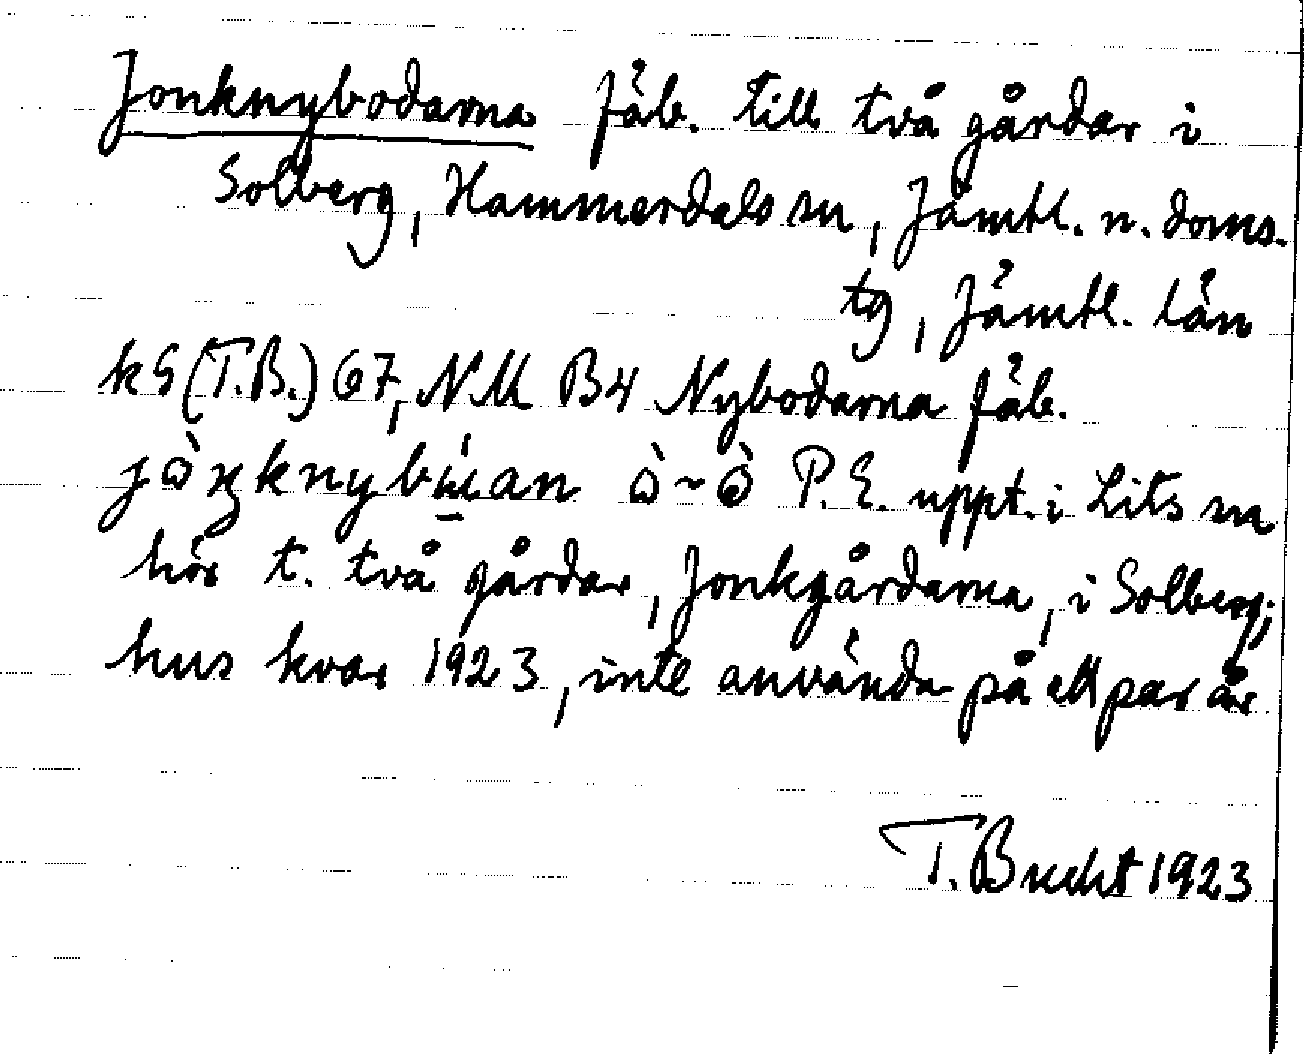 Jonknybodarna fäb. till två gårdar i
Solberg, Hammerdals sn, Jämtl. n. doms.
tg, Jämtl. län
kS (T.B.) 67, NM B4 Nybodarna fäb.
P.E. uppt. i Lits sn
hör t. två gårdar, Jonkgårdarna, i Solberg;
hus kvar 1923, inte använda på ett par år
T. Bucht 1923